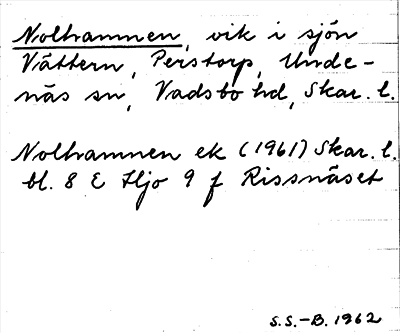 Nolhamnen, vik i sjön
Vättern, Perstorp, Unde-
näs sn, Vadsbo hd, Skar. l.
Nolhamnen ek (1961) Skar. l.
bl. 8 E Hjo 9 f Rissnäset
S.S.-B. 1962